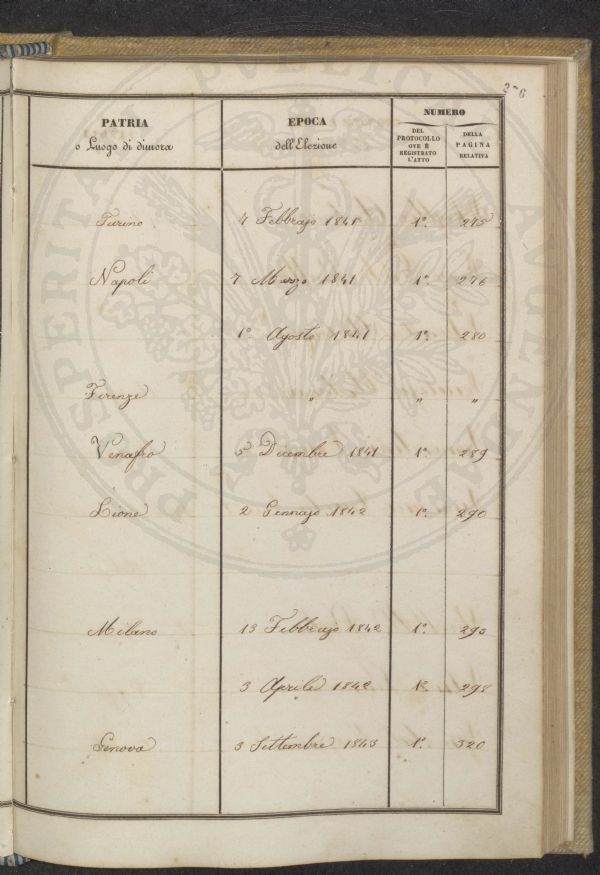 276
PATRIA
o Luogo di dimora
EPOCA
dell'Elezione
NUMERO
DEL
PROTOCOLLO
OVE È
REGISTRATO
L'ATTO
DELLA
PAGINA
RELATIVA
Torino 7 Febbrajo 1841 1º. 275
Napoli 7 Marzo 1841 1º 276
1º Agosto 1841 1º. 280
Firenze " " "
Venafro 5 Dicembre 1841 1º. 289
Lione 2 Gennajo 1842 1º. 290
Milano 13 Febbrajo 1842 1º. 295
3 Aprile 1842 1º. 298
Genova 3 Settembre 1843 1º. 320
PROSPERITATI PUBLICAE AUGENDAE